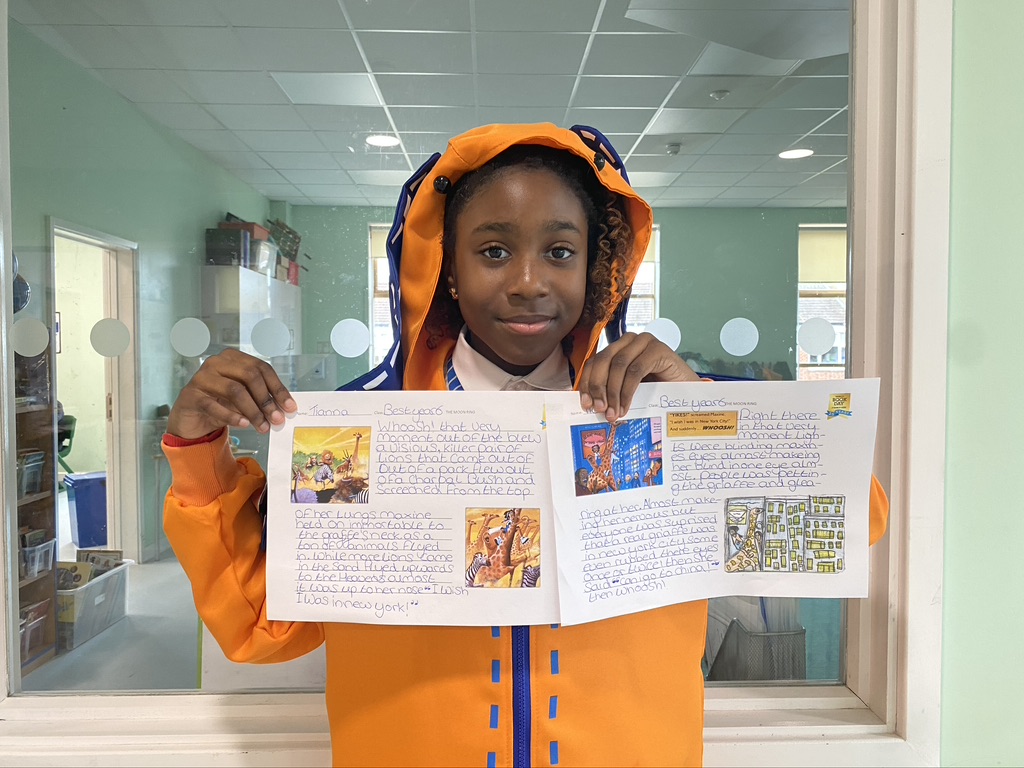 Name: Tianna Class: Best year 6 THE MOON KING
Whoosh! that very
moment out of the blew
a visious, killer pair of
Lions that came out of
out of a pack flew out
of a Charpal Bush and
screemed. From the top
of her Lungs Maxine
held on
to
the giraffe's neck as a
ton of animals flyed
in while more tions Came
in the Sand Flyed upwards
to the Heavens almost
it was up to her nose "I wish
I Was in new york!"
Class: Best year 6 THE MOON KING
"YIKES!" screamed Maxine.
"I wish I was in New York City!"
And suddenly... WHOOSH!
Right there
in that very
moment ligh-
ts were blinding maxin-
es eyes almost makeing
her blind in one eye alm-
ost. People was pettin-
g the giraffe and glea-
ing at her. Almost make-
ing her nervous but
everyone was suprised
that a real giraffe was
in new york city some
even rubed there eyes
once or twice; then she
Said "can i go to china!"
then whoosh!
BOOK
DAY